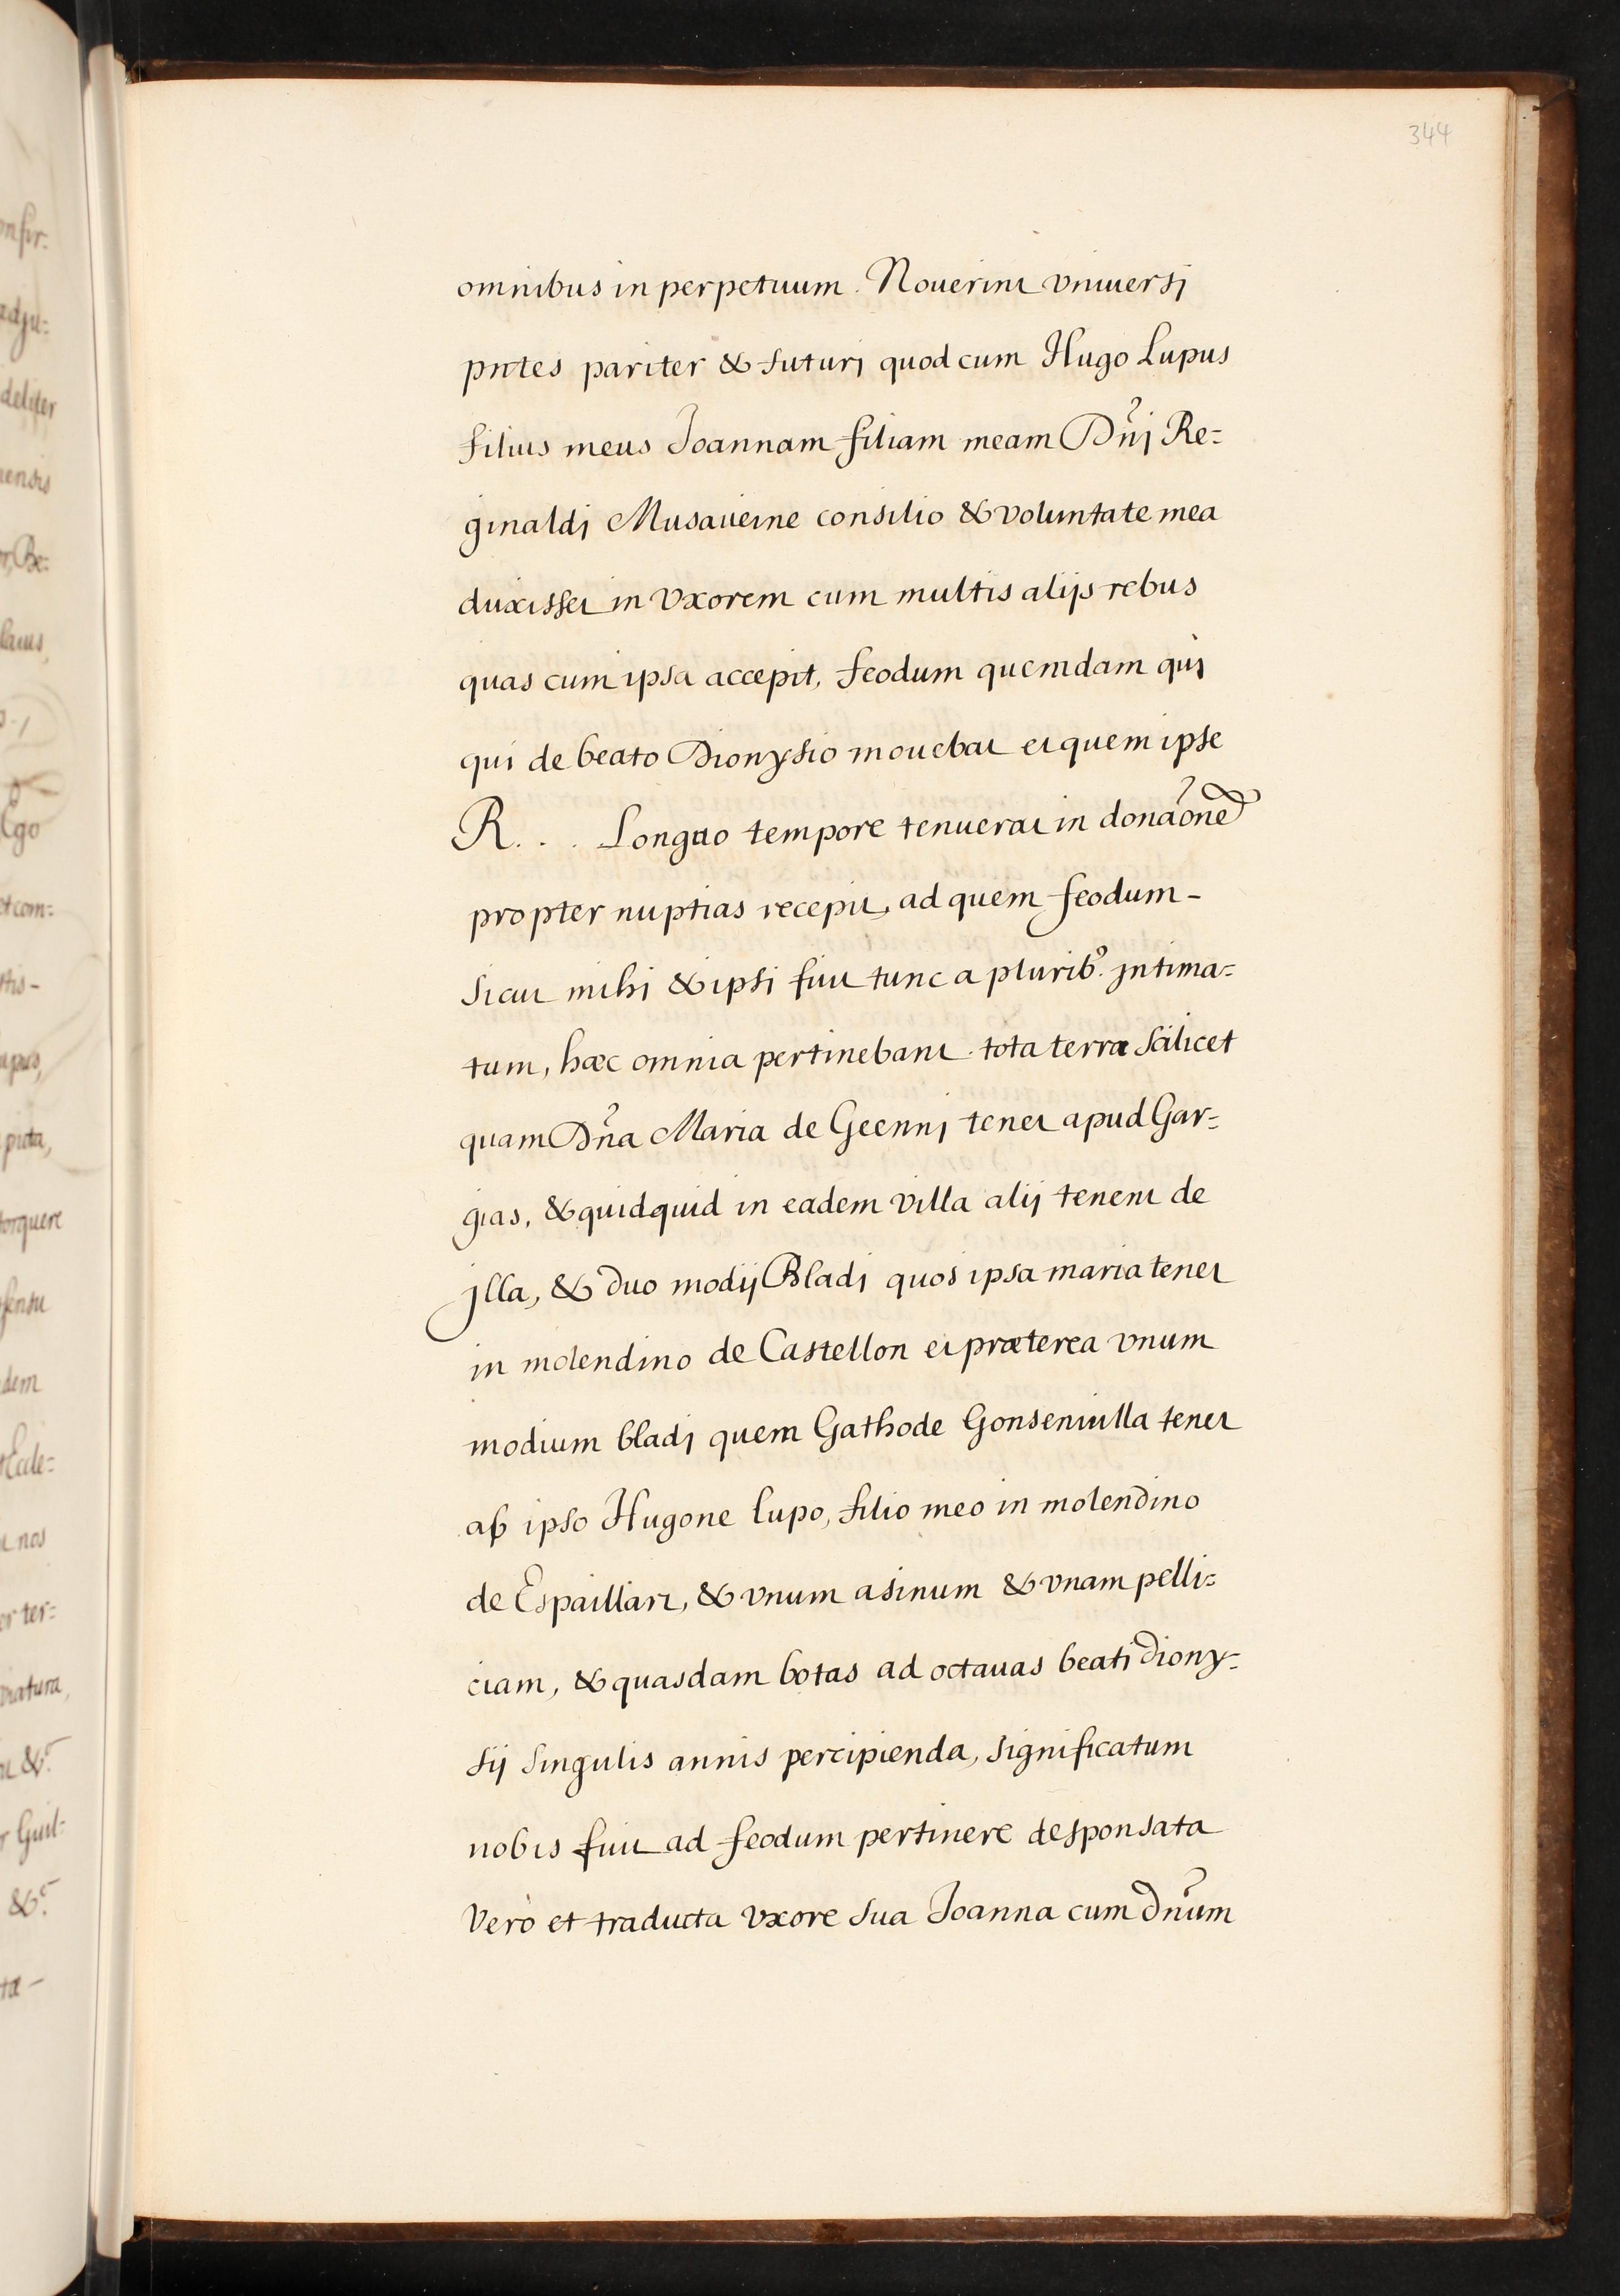 344
omnibus in perpetuum. Nouerint vniuersj
pntes pariter & futurj quod cum Hugo Lupus
filius meus Joannam filiam meam Dñj Re=
ginaldj Musaueine consilio & voluntate mea
duxisset in vxorem cum multis alijs rebus
quas cum ipsa accepit, feodum quemdam quj
qui de beato Dionysio mouebat et quem ipse
R. . . Longuo tempore tenuerat in donãone
propter nuptias recepit, ad quem feodum-
Sicut mihj & ipsi fuit tunc a plurib9. jntima=
tum, hæc omnia pertinebant. tota terra Scilicet
quam Dña Maria de Geennj tenet apud Gar=
gias, & quidquid in eadem villa alij tenent de
jlla, & duo modij Bladj quos ipsa maria tenet
in molendino de Castellon et præterea vnum
modium bladj quem Gathode Gonseniuilla tenet
ab ipso Hugone lupo, filio meo in molendino
de Espaillart, & vnum asinum & vnam pelli=
ciam, & quasdam botas ad octauas beati diony=
sij Singulis annis percipienda, Significatum
nobis fuit ad feodum pertinere desponsata
Verò et traducta vxore sua Joanna cum dñum